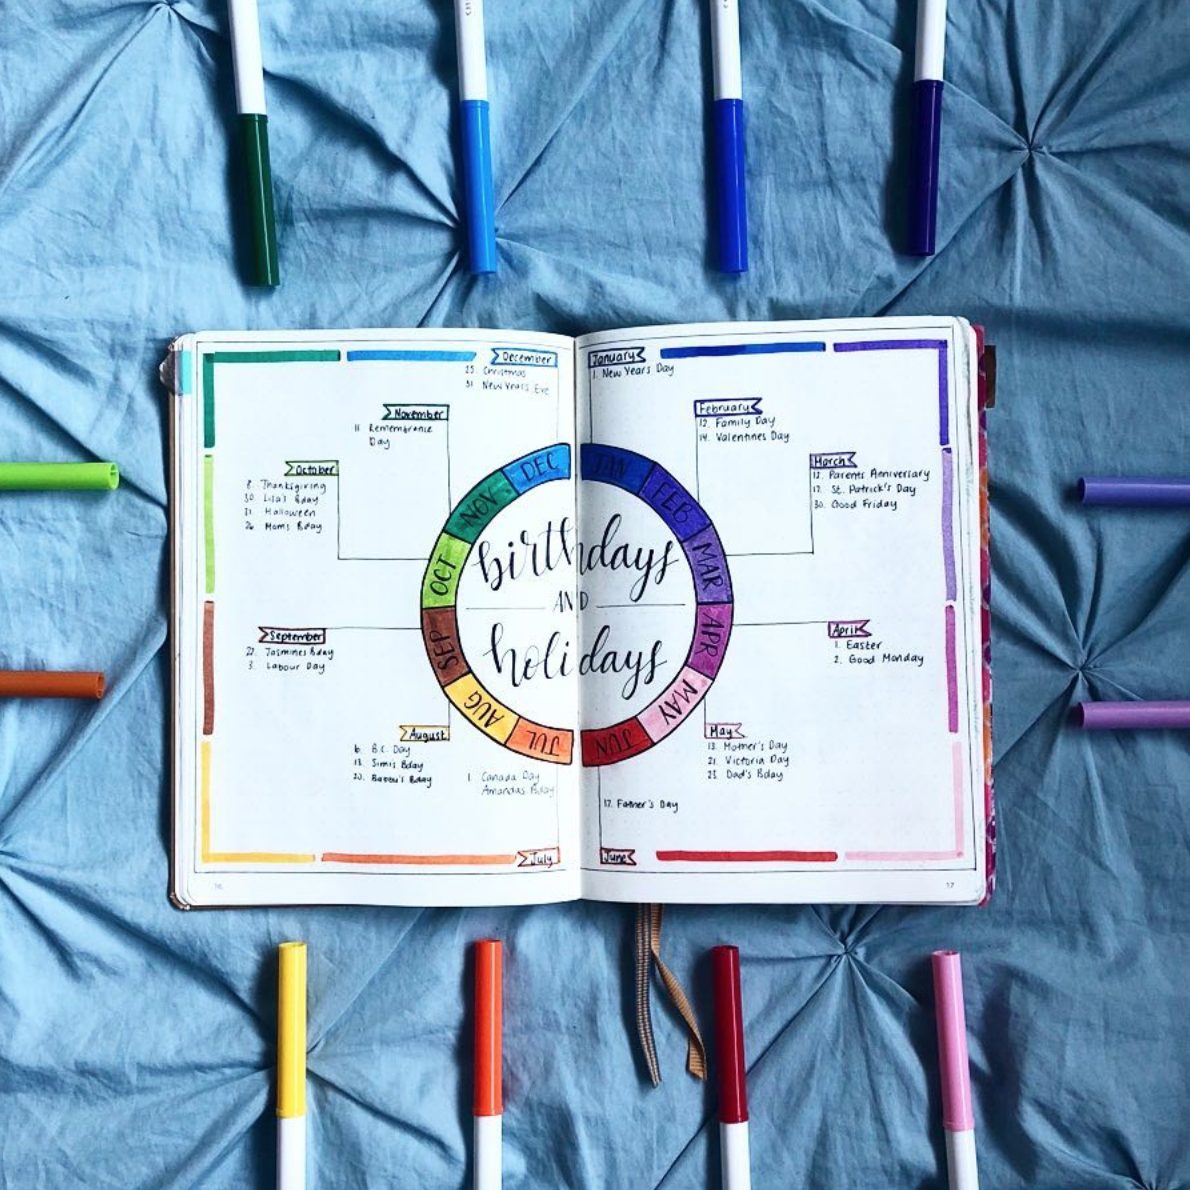 December
25. Christmas
31. New Years Eve
November
11 Remembrance
Day
October
8. Thanksgiving
30. Lisa's Bday
31. Halloween
26. Moms Bday
September
22. Jasmines Bday
3. Labour Day
August
6. B.C. Day
13. Simis Bday
20. Bday
July
1. Canada Day
Amandas Bday
January
1. New Years Day
February
12. Family Day
14. Valentines Day
March
12. Parents Anniversary
17. St. Patrick's Day
30. Good Friday
April
1. Easter
2. Good Monday
May
13. Mother's Day
21. Victoria Day
25. Dad's Bday
17. Father's Day
June
JAN
FEB
MAR
APR
MAY
JUN
JUL
AUG
SEP
OCT
NOV
DEC
birthdays
AND
holidays
16
17